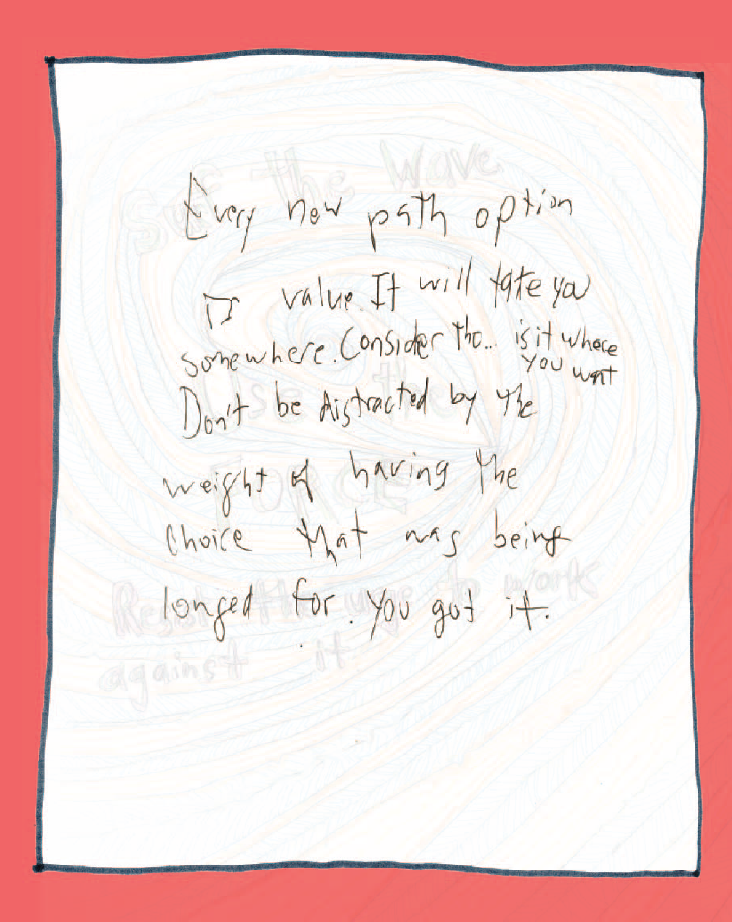 Surf the Wave
Every new path option
is value. It will take you
somewhere. Consider tho.. is it where
you want
Use the
Don't be distracted by the
weight of having the
FORCE
choice that was being
longed for. You got it.
Resist the urge to work
against it